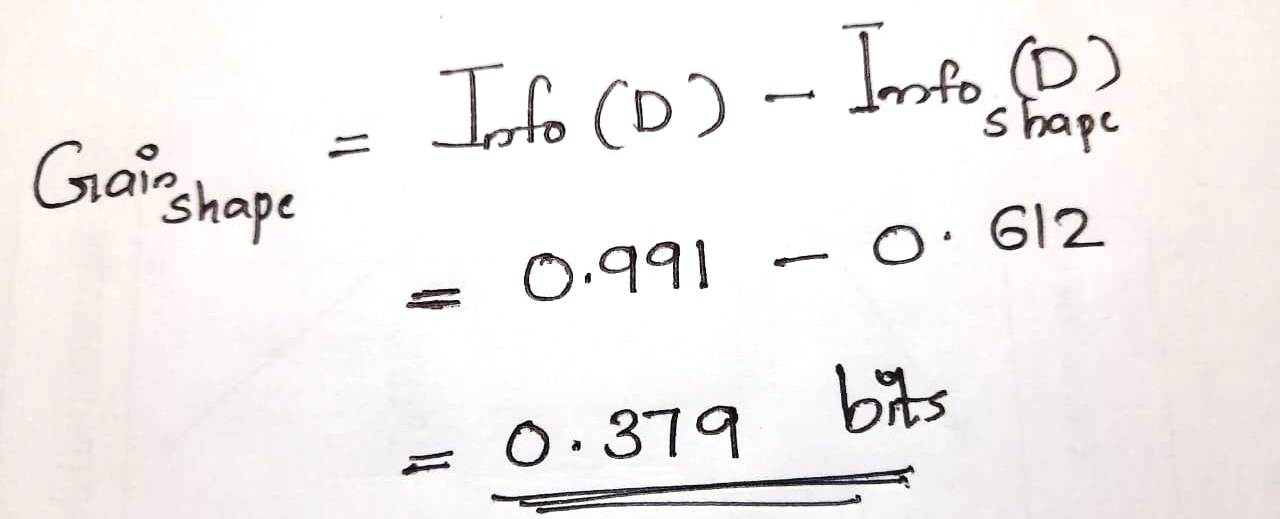 Gain shape = Info (D) - Info shape (D)
= 0.991 - 0.612
= 0.379 bits